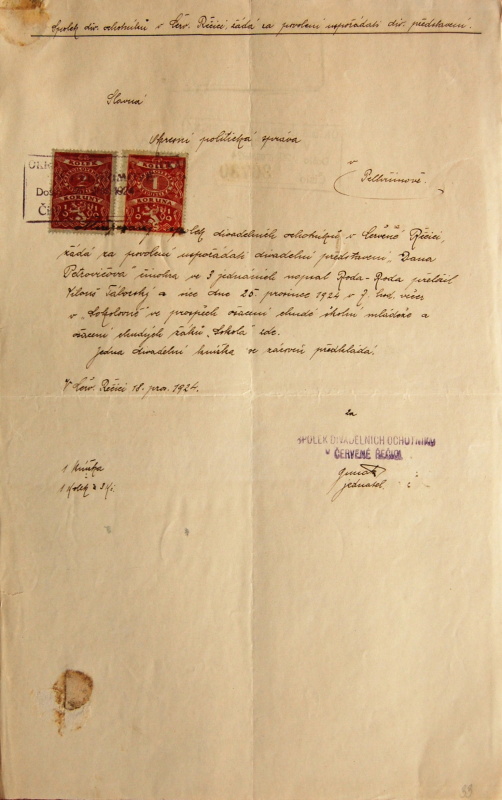 Spolek div. ochotníků v Červ. Řečici, žádá za povolení uspořádati div. představení.
Slavná
Okresní politická správa
v
Pelhřimově.
KOLEK
KOLEK
2
1
KORUNA
KORUNA
1924
spolek divadelních ochotníků v Červené Řečici,
žádá za povolení uspořádati divadelní představení "Dana
Petrovičová" činohra ve 3 jednáních napsal Roda-Roda přeložil
Táborský a sice dne 25 prosince 1924 o 7. hod. večer
v "Sokolovně" ve prospěch ošacení chudé školní mládeže a
ošacení chudých žáků "Sokola" zde.
Jedna divadelní knížka se zároveň předkládá.
V Červ. Řečici 18. pro. 1924.
za
SPOLEK DIVADELNÍCH OCHOTNÍKŮ
v ČERVENÉ ŘEČICI
1 knížka
1 kolek a 3 Kč.
jednatel.